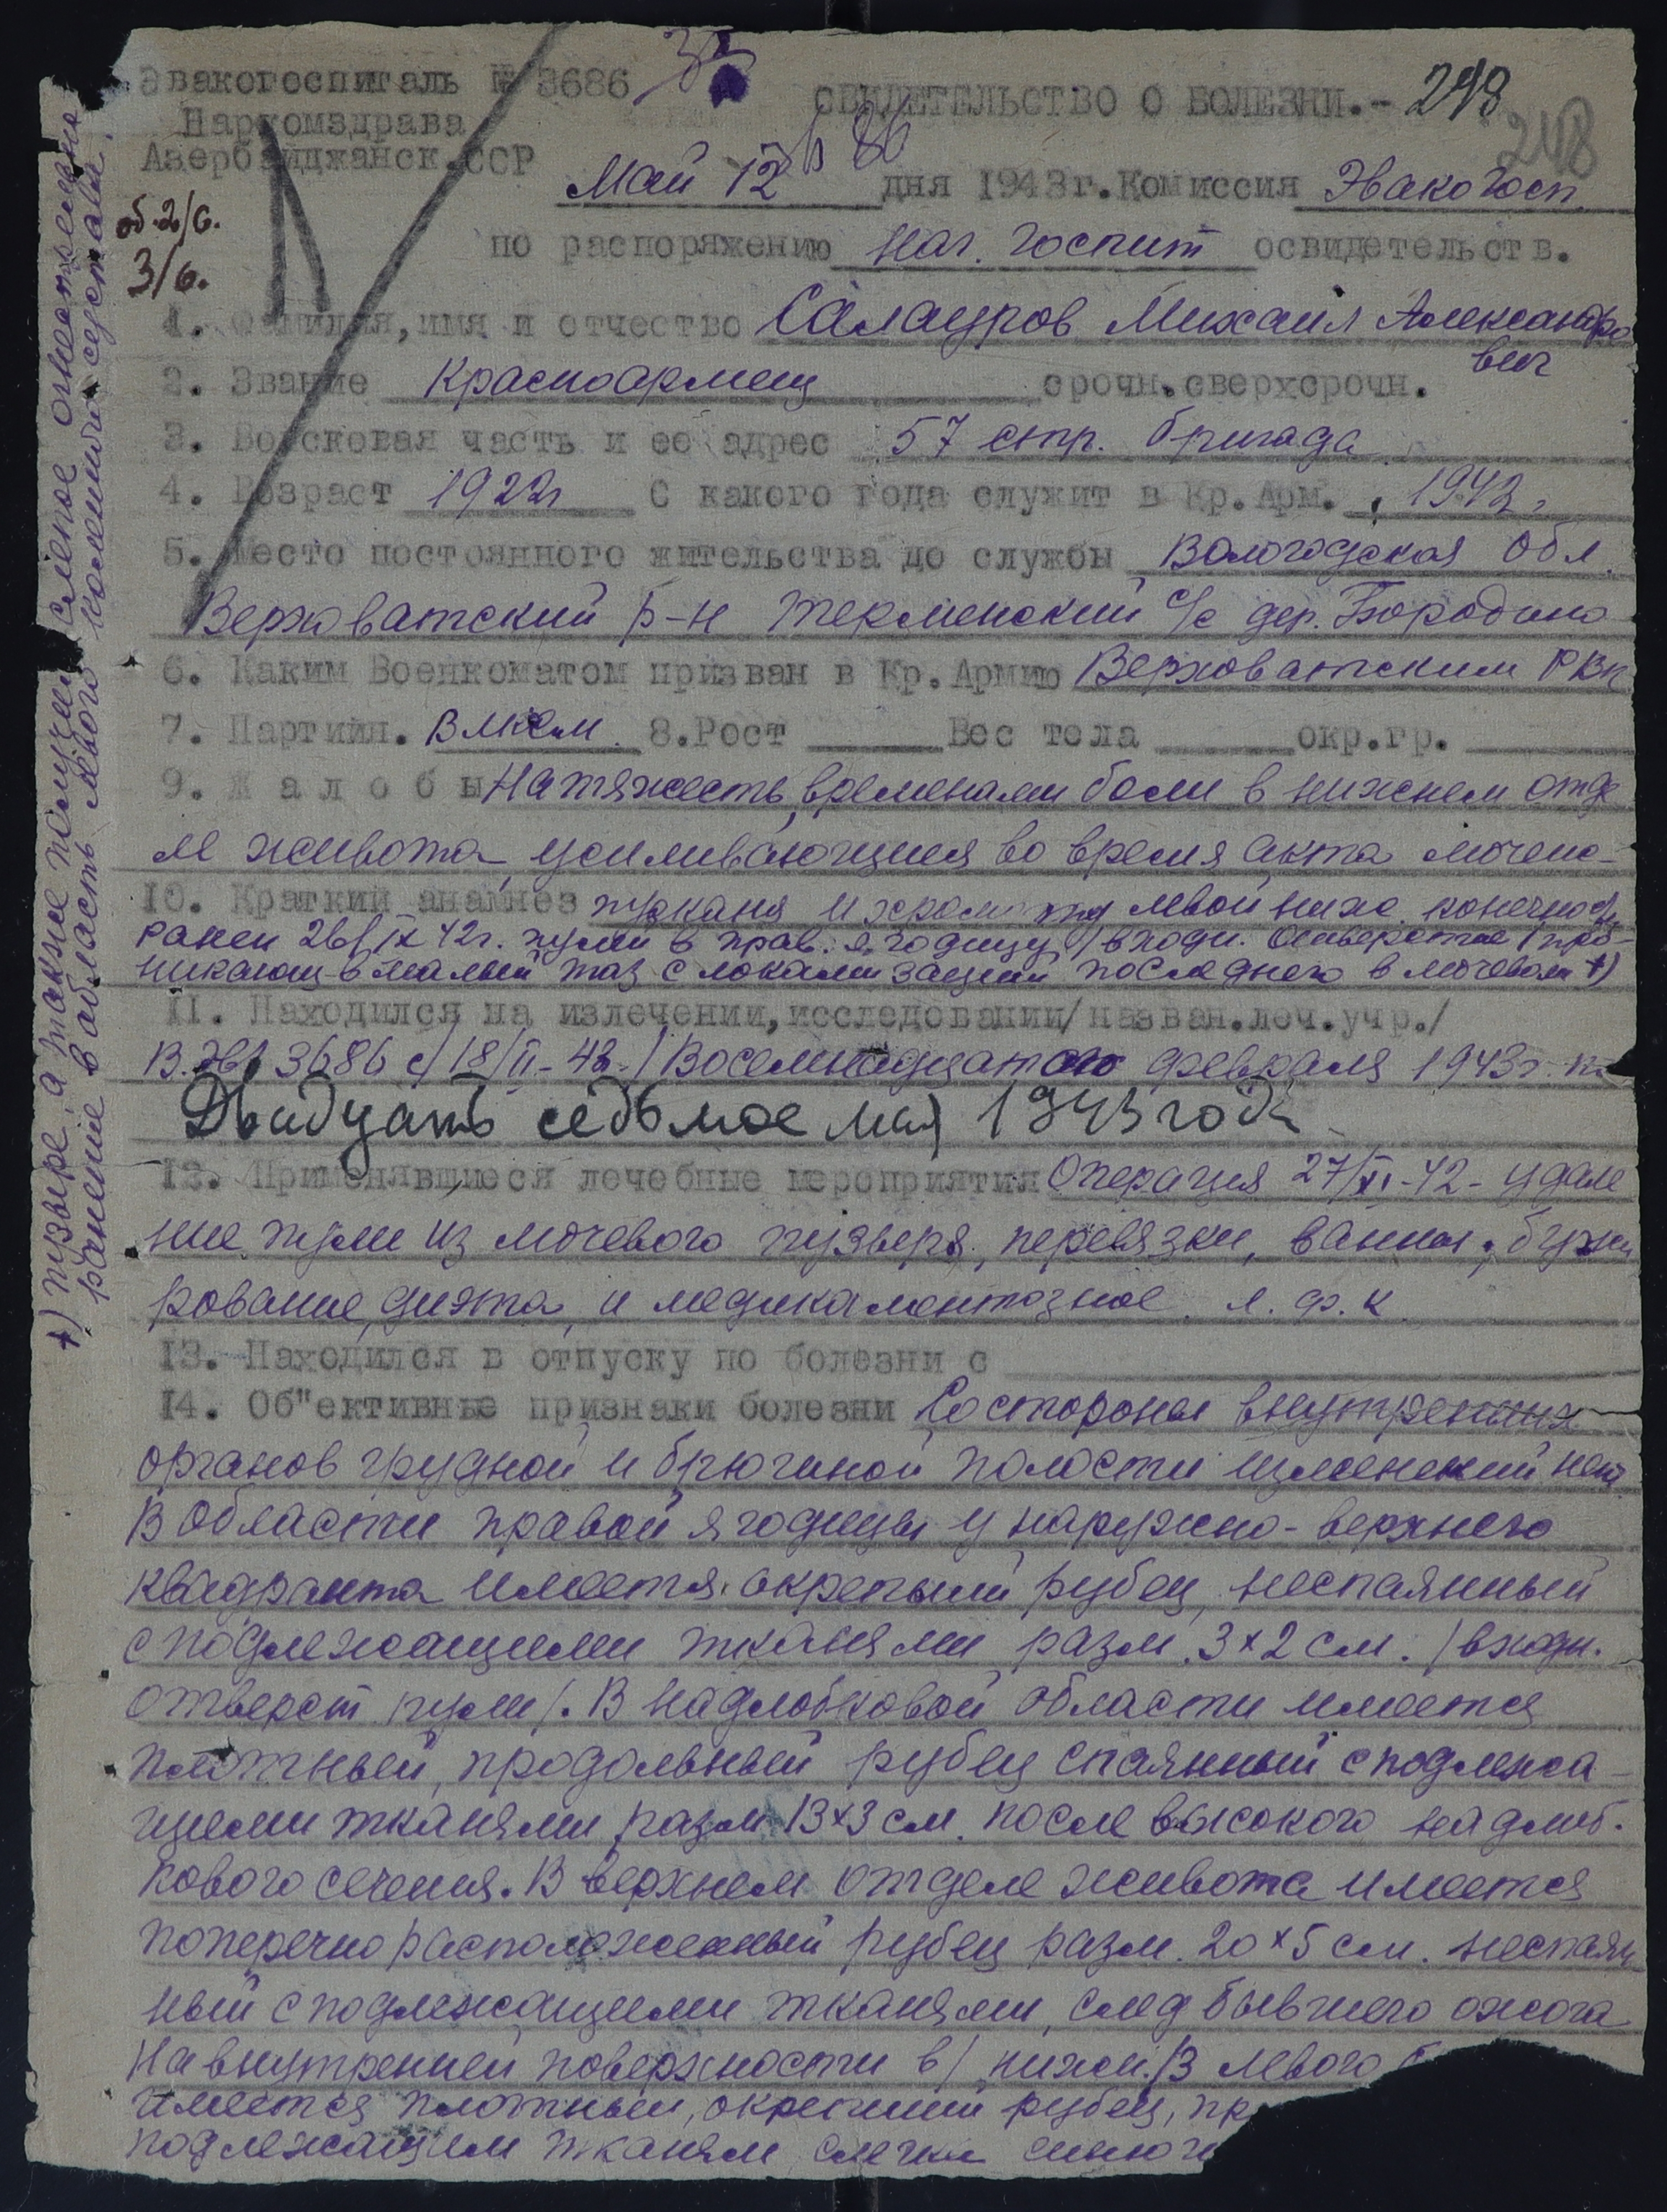 Эвакогоспиталь № 3686
Наркомздрава
Азербайджанск.ССР
СВИДЕТЕЛЬСТВО О БОЛЕЗНИ.- 249
248
Май 12 дня 1943г. Комиссия Эвакогосп.
об. 2/6.
3/6.
по распоряжению нач. госпит освидетельств.
1. Фамилия, имя и отчество Салауров Михаил Александро
вич
2. Звание красноармеец срочн.сверхсрочн.
3. Войсковая часть и ее адрес 57 стр. бригада
4. Возраст 1922г С какого года служит в Кр.Арм. 1942г
5. Место постоянного жительства до службы Вологодская обл.
Верховатский р-н Терменский с/с дер. Бородино
6. Каким Военкоматом призван в Кр.Армию Верховатским РВк
7. Партийн. ВЛКСМ 8.Рост Вес тела окр.гр.
9. Ж а л о б ы На тяжесть, временами боли в нижнем отде
ле живота, усиливающиеся во время акта мочеис-
10. Краткий анамнез пускания и левой нижн. конечности
ранен 26/IX 42г. пулей в прав. ягодицу /входн. отверстие/ про-
никающ в малый таз с локализацией последнего в мочевом +)
11. Находился на излечении, исследовании/назван.леч.учр./
В.ЭвГ 3686 с/18/II-43-/ Восемнадцатого февраля 1943г. по
Двадцать седьмое мая 1943 года
12. Применявшиеся лечебные мероприятия Операция 27/XI-42- удале
ние пули из мочевого пузыря, перевязки, ванны, бужи
рование, диэта, и медикаментозное. л.ф.к
13. Находился в отпуску по болезни с
14. Об"ективные признаки болезни Со стороны внутренних
органов грудной и брюшной полости изменений нет
В области правой ягодицы у наружно-верхнего
квадранта имеется окрепший рубец, неспаянный
с подлежащими тканями разм. 3х2 см. /входн.
отверст пули/. В надлобковой области имеется
плотный, продольный рубец спаянный с подлежа-
щими тканями разм 13х3 см. после высокого надлоб-
кового сечения. В верхнем отделе живота имеется
поперечно расположенный рубец разм. 20х5 см. неспаян
ный с подлежащими тканями, след бывшего ожога
На внутренней поверхности в/ нижн./3 левого
имеется плотный, окрепший рубец, пр
подлежащим тканям слегка синюш
+) пузыре, а также получил слепое огнестрельное
ранение в область левого коленного сустава.